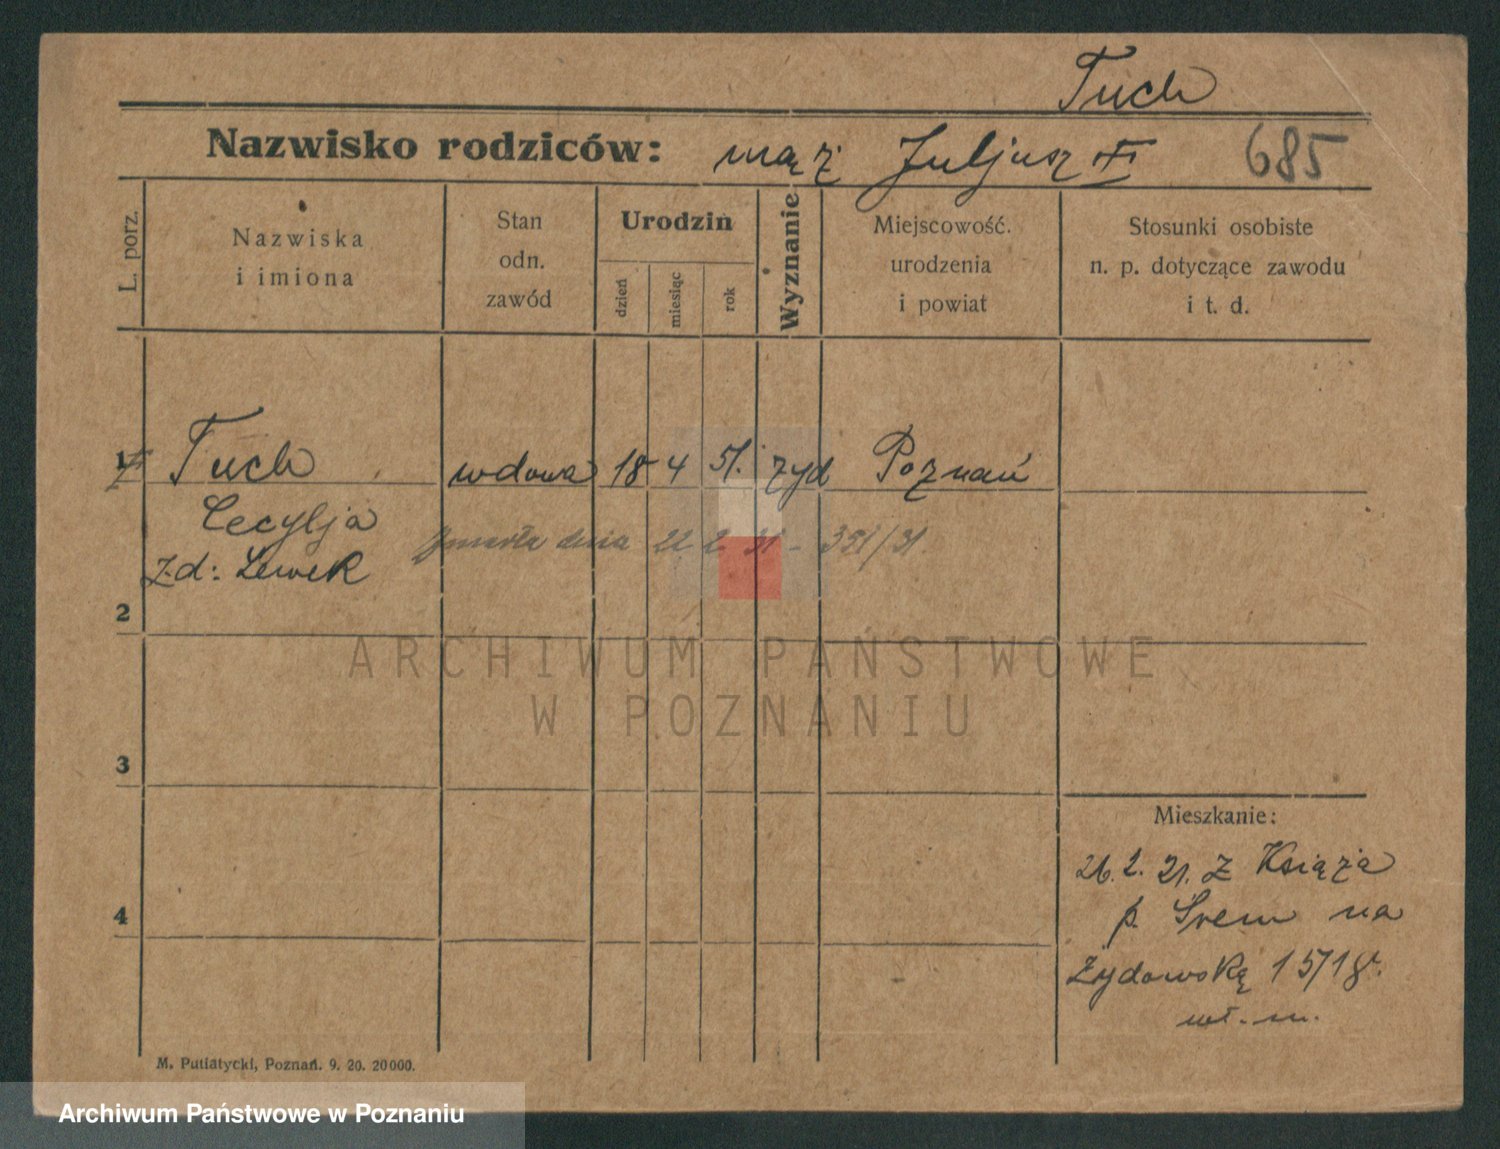 Tuch
Nazwisko rodziców: mąż Juljusz 685
L. porz.
Nazwiska
i imiona
Stan
odn.
zawód
Urodzin
dzień
miesiąc
rok
Wyznanie
Miejscowość.
urodzenia
i powiat
Stosunki osobiste
n. p. dotyczące zawodu
i t. d.
1 Tuch wdowa 18 4 51. żyd Poznań
Cecylja
zmarła dnia 22 2 31 - 351/31
z.d: Lewek
2
ARCHIWUM PAŃSTWOWE
W POZNANIU
3
Mieszkanie:
26. 2. 21. z Książa
p. Śrem na
4
Żydowską 15/18.
wł. m.
M. Putiatycki, Poznań. 9. 20. 20000.
Archiwum Państwowe w Poznaniu